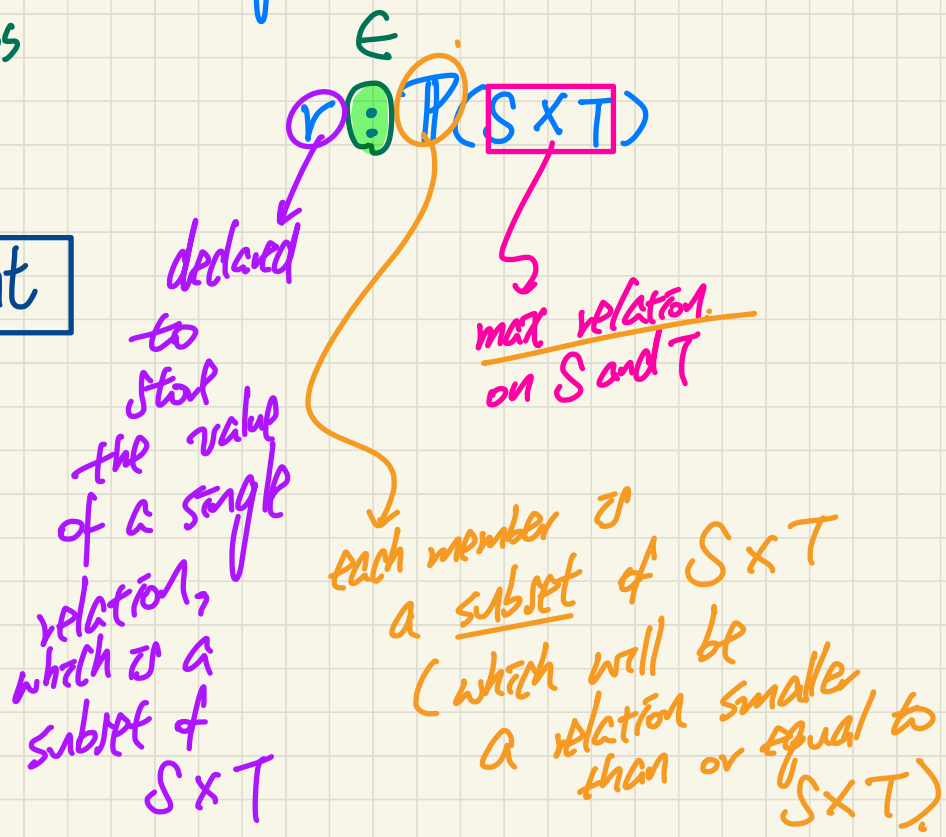 s
∈
r : ℙ(S × T)
t
declared
to
store
the value
of a single
relation,
which is a
subset of
S × T
max relation
on S and T
each member is
a subset of S × T
(which will be
a relation smaller
than or equal to
S × T).